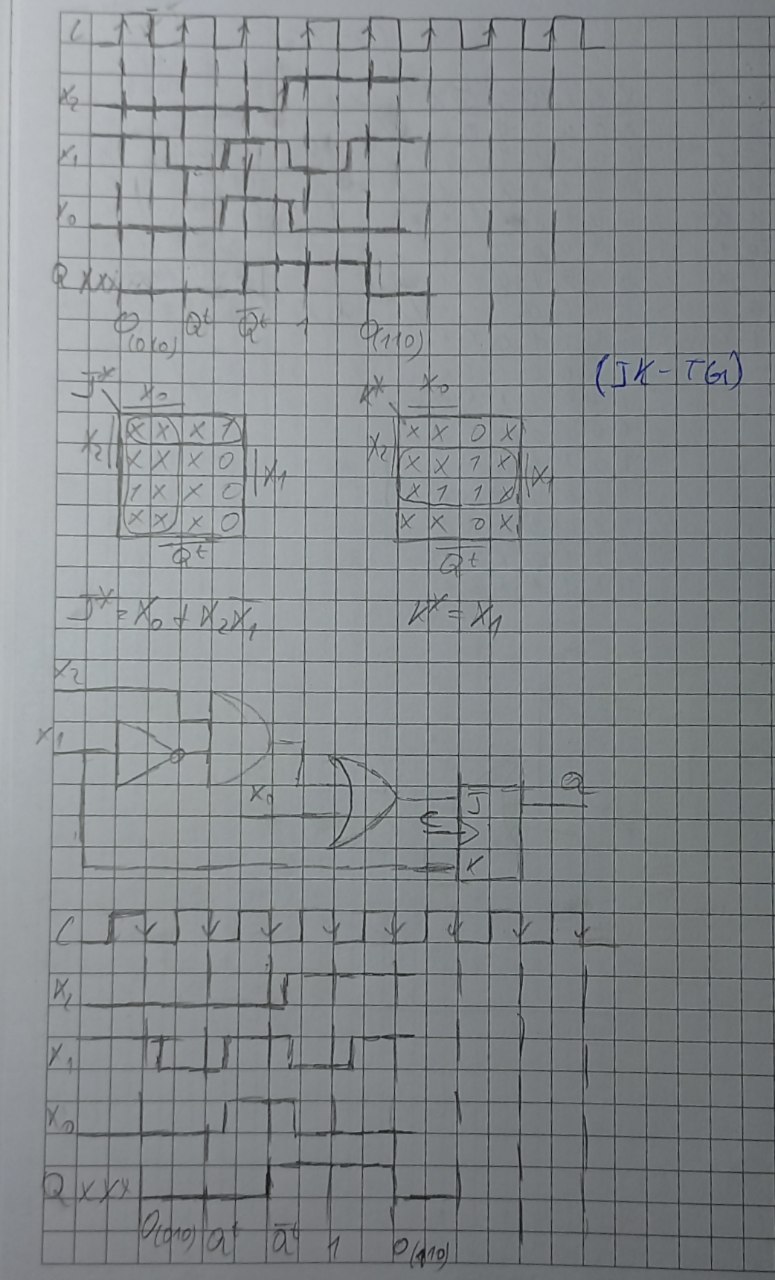 C
X₂
X₁
X₀
Q XXX
0(010) Qᵗ Q̅ᵗ 1 0(110)
(JK-TG)
Jˣ X₀ Kˣ X₀
X X X 1 X X 0 X
X₂ X X X 0 X₁ X₂ X X 1 X X₁
1 X X 0 X 1 1 X
X X X 0 X X 0 X
Qᵗ Qᵗ
Jˣ = X₀ + X₂X̅₁ Kˣ = X₁
X₂
X₁
X₀ J Q
C
K
C
X₂
X₁
X₀
Q XXX
0(010) Qᵗ Q̅ᵗ 1 0(110)